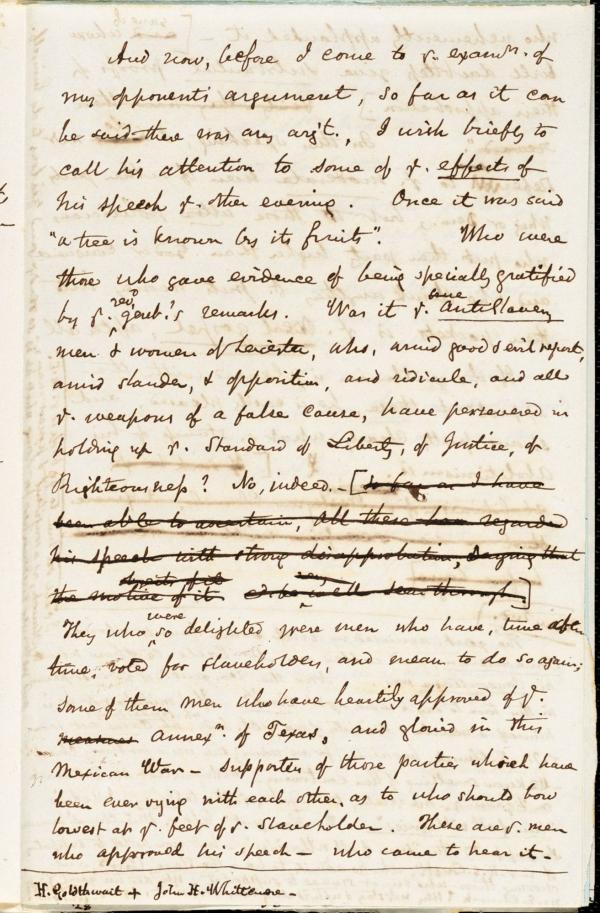 And now, before I come to ye. examn. of
my opponent's argument, so far as it can
be said there was any arg't., I wish briefly to
call his attention to some of ye. effects of
his speech ye. other evening. Once it was said
"a tree is known by its fruits". Who were
those who gave evidence of being specially gratified
by ye. revd. gent.'s remarks. Was it ye. true AntiSlavery
men & women of Leicester, who, amid good & evil report,
amid slander, & opposition, and ridicule, and all
ye. weapons of a false cause, have persevered in
holding up ye. Standard of Liberty, of Justice, of
Righteousness? No, indeed. - [So far as I have
been able to ascertain, all these have regarded
his speech with strong disapprobation, saying that
the motive of it cd. be well seen through.]
They who were so delighted were men who have, time after
time, voted for slaveholders, and mean to do so again;
some of them men who have heartily approved of ye.
measures annexn. of Texas, and gloried in this
Mexican War - supporters of those parties which have
been ever vying with each other, as to who should bow
lowest at ye. feet of ye. Slaveholder. These are ye. men
who approved his speech - who came to hear it -
H. Goldthwait + John H. Whittemore -